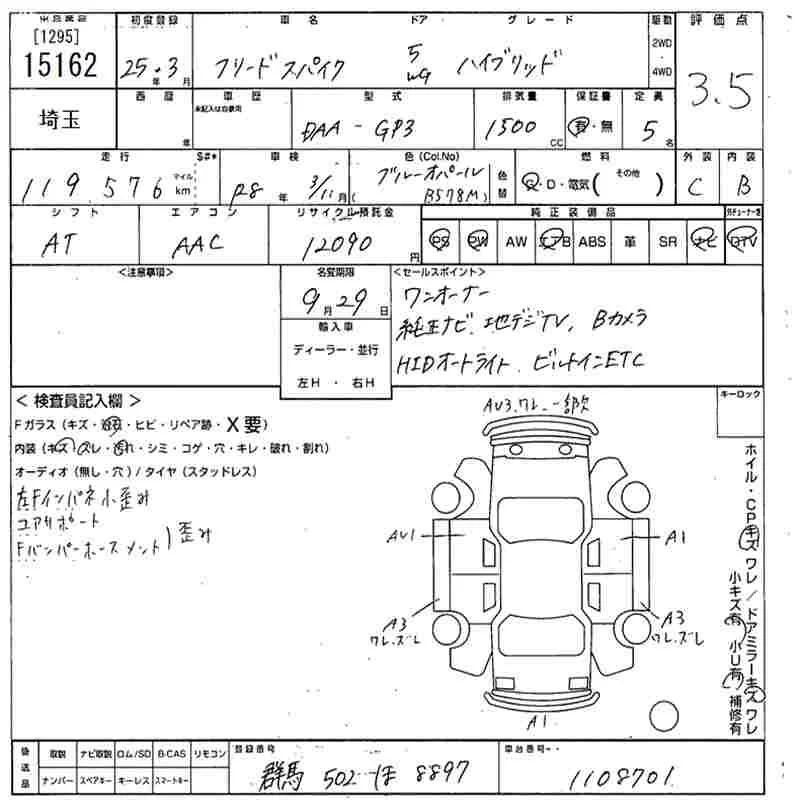 [1295]
15162
初度登録 車名 ドア グレード 駆動 評価点
25年3月 フリードスパイク 5 WG ハイブリッド 2WD・4WD 3.5
埼玉
西暦 年 車歴 未記入は自家用 型式 排気量 保証書 定員
DAA-GP3 1500 CC 有・無 5名
走行 S#* 車検 色(Col.No) 色替 燃料 外装 内装
119,576 マイル km R8年 3/11月 ブルーオパール (B578M) G・D・電気( その他 ) C B
シフト エアコン リサイクル預託金 純正装備品
AT AAC 12090円 PS PW AW エアB ABS 革 SR ナビ DTV
<注意事項> 名変期限 <セールスポイント>
9月29日 ワンオーナー
純正ナビ.地デジTV、Bカメラ
HIDオートライト.ビルトインETC
輸入車
ディーラー・並行
左H・右H
<検査員記入欄>
キーロック
Fガラス(キズ・飛石・ヒビ・リペア跡・X要)
内装(キズ・スレ・汚れ・シミ・コゲ・穴・キレ・破れ・割れ)
オーディオ(無し・穴)/タイヤ(スタッドレス)
左Fインパネ小歪み
コアサポート
Fバンパーホースメント)歪み
AU3.ワレ.一部欠
AU1
A1
A3
ワレ.ズレ
A3
ワレ.ズレ
A1
ホイル・CPキズワレ/ドアミラーキズワレ
小キズ有 小U有 補修有
後送品 取説 ナビ取説 ロム/SD B-CAS リモコン
ナンバー スペアキー キーレス スマートキー
登録番号 車台番号
群馬 502 ほ 8897
1108701